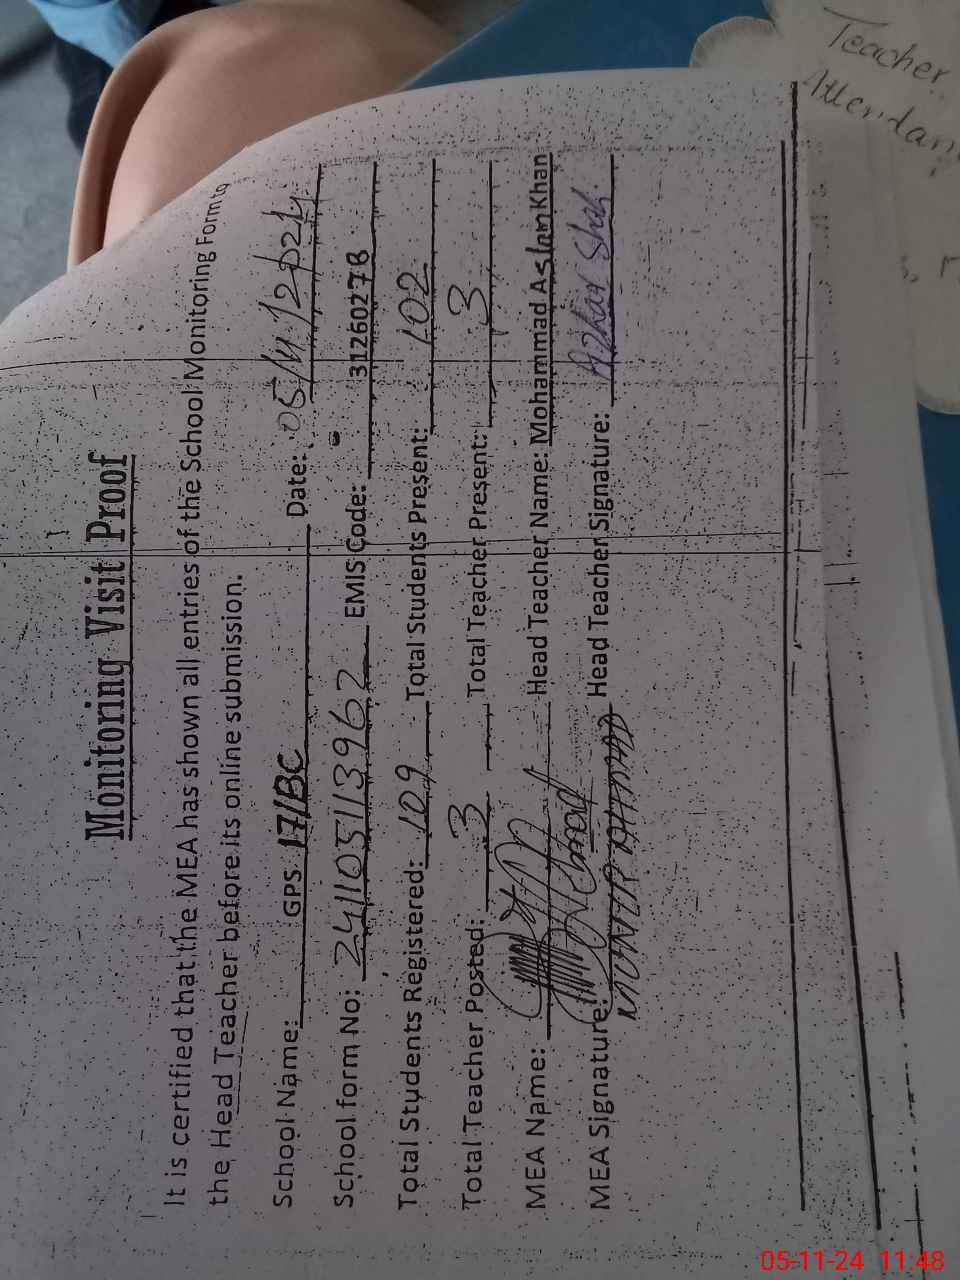 Monitoring Visit Proof
It is certified that the MEA has shown all entries of the School Monitoring Form to
the Head Teacher before its online submission.
School Name: GPS 17/BC Date: 05/11/2024
School form No: 241105113962 EMIS Code: 31260278
Total Students Registered: 109 Total Students Present: 102
Total Teacher Posted: 3 Total Teacher Present: 3
MEA Name: Head Teacher Name: Mohammad Aslam Khan
MEA Signature: MUNEER AHMAD Head Teacher Signature: Azhar Shah
Teacher
Attendan
05-11-24 11:48